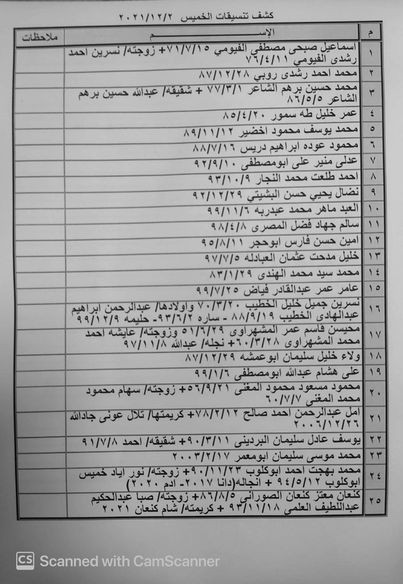 كشف تنسيقات الخميس ٢٠٢١/١٢/٢
م الإســـــــم ملاحظات
١ اسماعيل صبحى مصطفى الفيومي ٧١/٧/١٥+ زوجته/ نسرين احمد
رشدى الفيومي ٧٦/٤/١١
٢ محمد احمد رشدى روبي ٨٧/١٢/٢٨
٣ محمد حسين برهم الشاعر ٧٧/٣/١ + شقيقه/ عبدالله حسين برهم
الشاعر ٨٦/٥/٥
٤ عمر خليل طه سمور ٨٥/٤/٢٠
٥ محمد يوسف محمود اخضير ٨٩/١١/١٢
٦ محمود عوده ابراهيم دريس ٨٨/٧/١٦
٧ عدلى منير على ابومصطفى ٩٢/٩/١٠
٨ احمد طلعت محمد النجار ٩٣/١٠/٩
٩ نضال يحيي حسن البشيتي ٩٢/١٢/٢٩
١٠ العبد ماهر محمد عبدربه ٩٩/١١/٦
١١ سالم جهاد فضل المصرى ٩٨/٤/٨
١٢ امين حسن فارس ابوحجر ٩٥/٨/١١
١٣ خليل مدحت عثمان العبادله ٩٧/٧/٥
١٤ محمد سيد محمد الهندى ٨٣/١/٢٩
١٥ عامر عمر عبدالقادر فياض ٩٩/٧/٢٥
١٦ نسرين جميل خليل الخطيب ٧٠/٣/٢٠ واولادها/ عبدالرحمن ابراهيم
عبدالهادى الخطيب ٨٨/٩/١٩ - ساره ٩٣/٦/٢- حليمه ٩٩/١٢/٩
١٧ محيسن قاسم عمر المشهراوى ٥١/٦/٢٩ وزوجته/ عايشه احمد
محمد المشهراوى ٦٠/٣/٢٨+ نجله/ عبدالله ٩٧/١١/٨
١٨ ولاء خليل سليمان ابوعمشه ٨٧/١٢/٢٩
١٩ على هشام عبدالله ابومصطفى ٩٩/١/٦
٢٠ محمود مسعود محمود المغنى ٥٦/٩/٢١+ زوجته/ سهام محمود
محمد المغنى ٦٠/٧/٧
٢١ امل عبدالرحمن احمد صالح ٧٨/٢/١٢+ كريمتها/ تلال عونى جادالله
٢٠٠٦/١٢/٢٦
٢٢ يوسف عادل سليمان البردينى ٩٠/٣/١١+ شقيقه/ احمد ٩١/٧/٨
٢٣ محمد موسى سليمان ابومعمر ٢٠٠٣/٢/١٧
٢٤ محمد بهجت احمد ابوكلوب ٩٠/١١/٢٣+ زوجته/ نور اياد خميس
ابوكلوب ٩٤/٥/١٢ + انجاله(دانا ٢٠١٧- ادم ٢٠٢٠)
٢٥ كنعان معتز كنعان الصورانى ٨٦/٨/٥+ زوجته/ صبا عبدالحكيم
عبداللطيف العلمي ٩٣/١١/١٨ + كريمته/ شام كنعان ٢٠٢١
CS Scanned with CamScanner